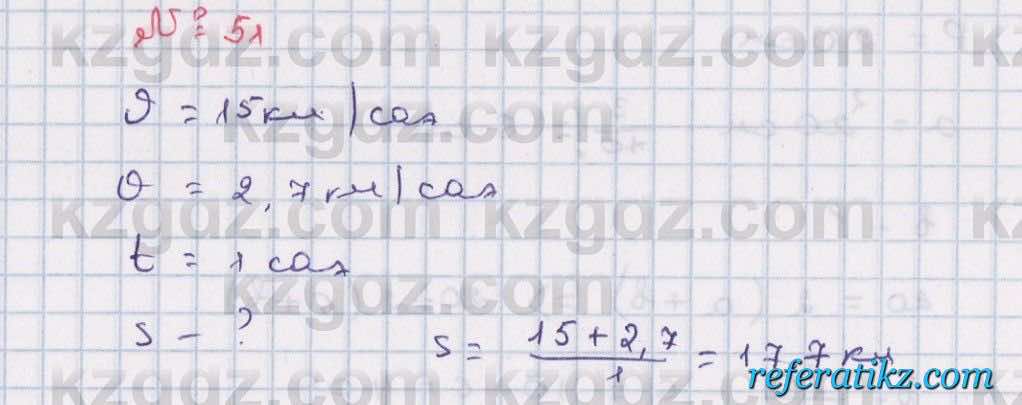 № 51
kzgdz.com kzgdz.com
ϑ = 15 км | сағ
kzgdz.com
ϑ = 2,7 км | сағ
kzgdz.com kzgdz.com
t = 1 сағ
kzgdz.com
s - ? s = 15 + 2,7 / 1 = 17,7 км
kzgdz.com kzgdz.com
referatikz.com